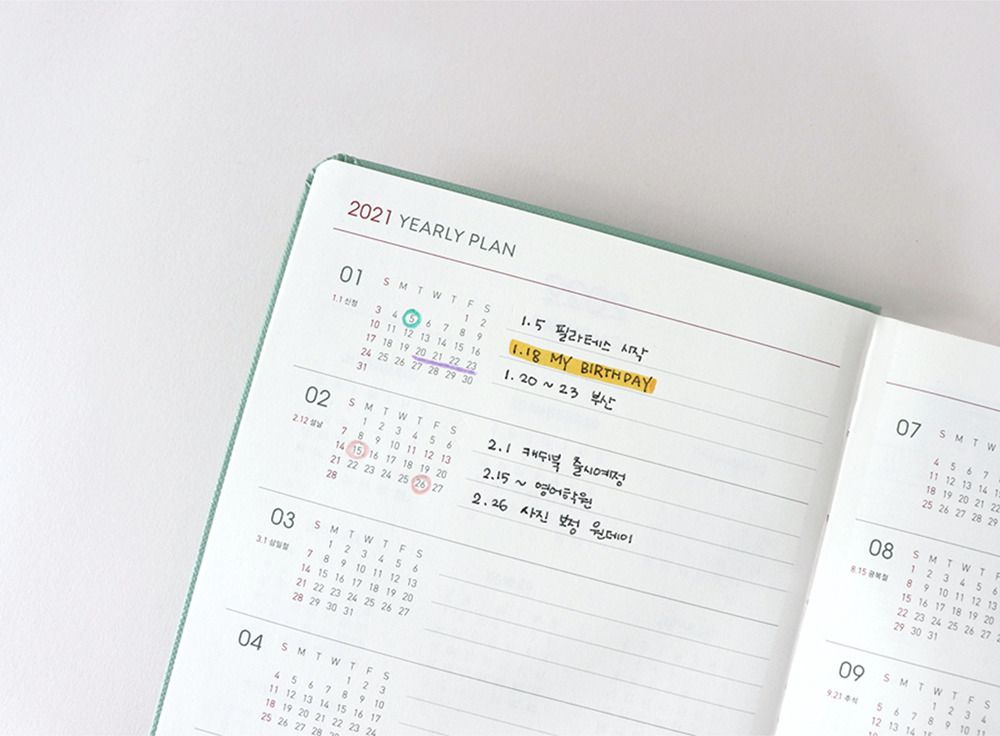 2021 YEARLY PLAN
01
1.1 신정
S M T W T F S
1 2
3 4 5 6 7 8 9
10 11 12 13 14 15 16
17 18 19 20 21 22 23
24 25 26 27 28 29 30
31
1.5 필라테스 시작
1.18 MY BIRTHDAY
1.20 ~ 23 부산
02
2.12 설날
S M T W T F S
1 2 3 4 5 6
7 8 9 10 11 12 13
14 15 16 17 18 19 20
21 22 23 24 25 26 27
28
2.1 캐쉬북 출시예정
2.15 ~ 영어학원
2.26 사진 보정 원데이
03
3.1 삼일절
S M T W T F S
1 2 3 4 5 6
7 8 9 10 11 12 13
14 15 16 17 18 19 20
21 22 23 24 25 26 27
28 29 30 31
04
S M T W T F S
1 2 3
4 5 6 7 8 9 10
11 12 13 14 15 16 17
18 19 20 21 22 23 24
25 26 27 28 29 30
07
S M T W
4 5 6 7
11 12 13 14
18 19 20 21
25 26 27 28
08
8.15 광복절
S M T W T
1 2 3 4 5
8 9 10 11 12
15 16 17 18 19
22 23 24 25 26
29 30 31
09
9.21 추석
S M T W T
1 2
5 6 7 8 9
12 13 14 15